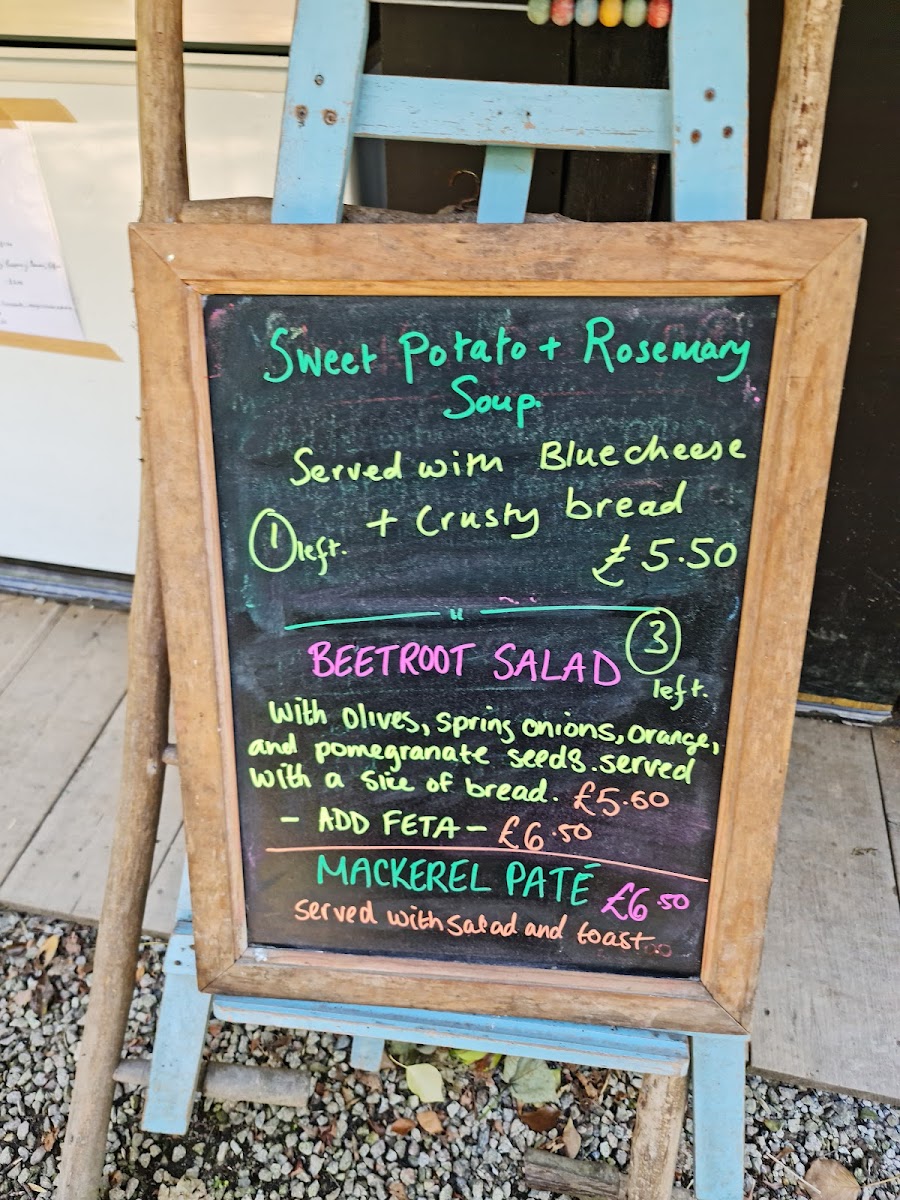 Sweet Potato + Rosemary
Soup.
Served with Bluecheese
+ Crusty bread
1 left.
£5.50
BEETROOT SALAD
3
left.
With olives, spring onions, orange,
and pomegranate seeds. served
with a slice of bread. £5.60
- ADD FETA - £6.50
MACKEREL PATÉ £6.50
served with salad and toast